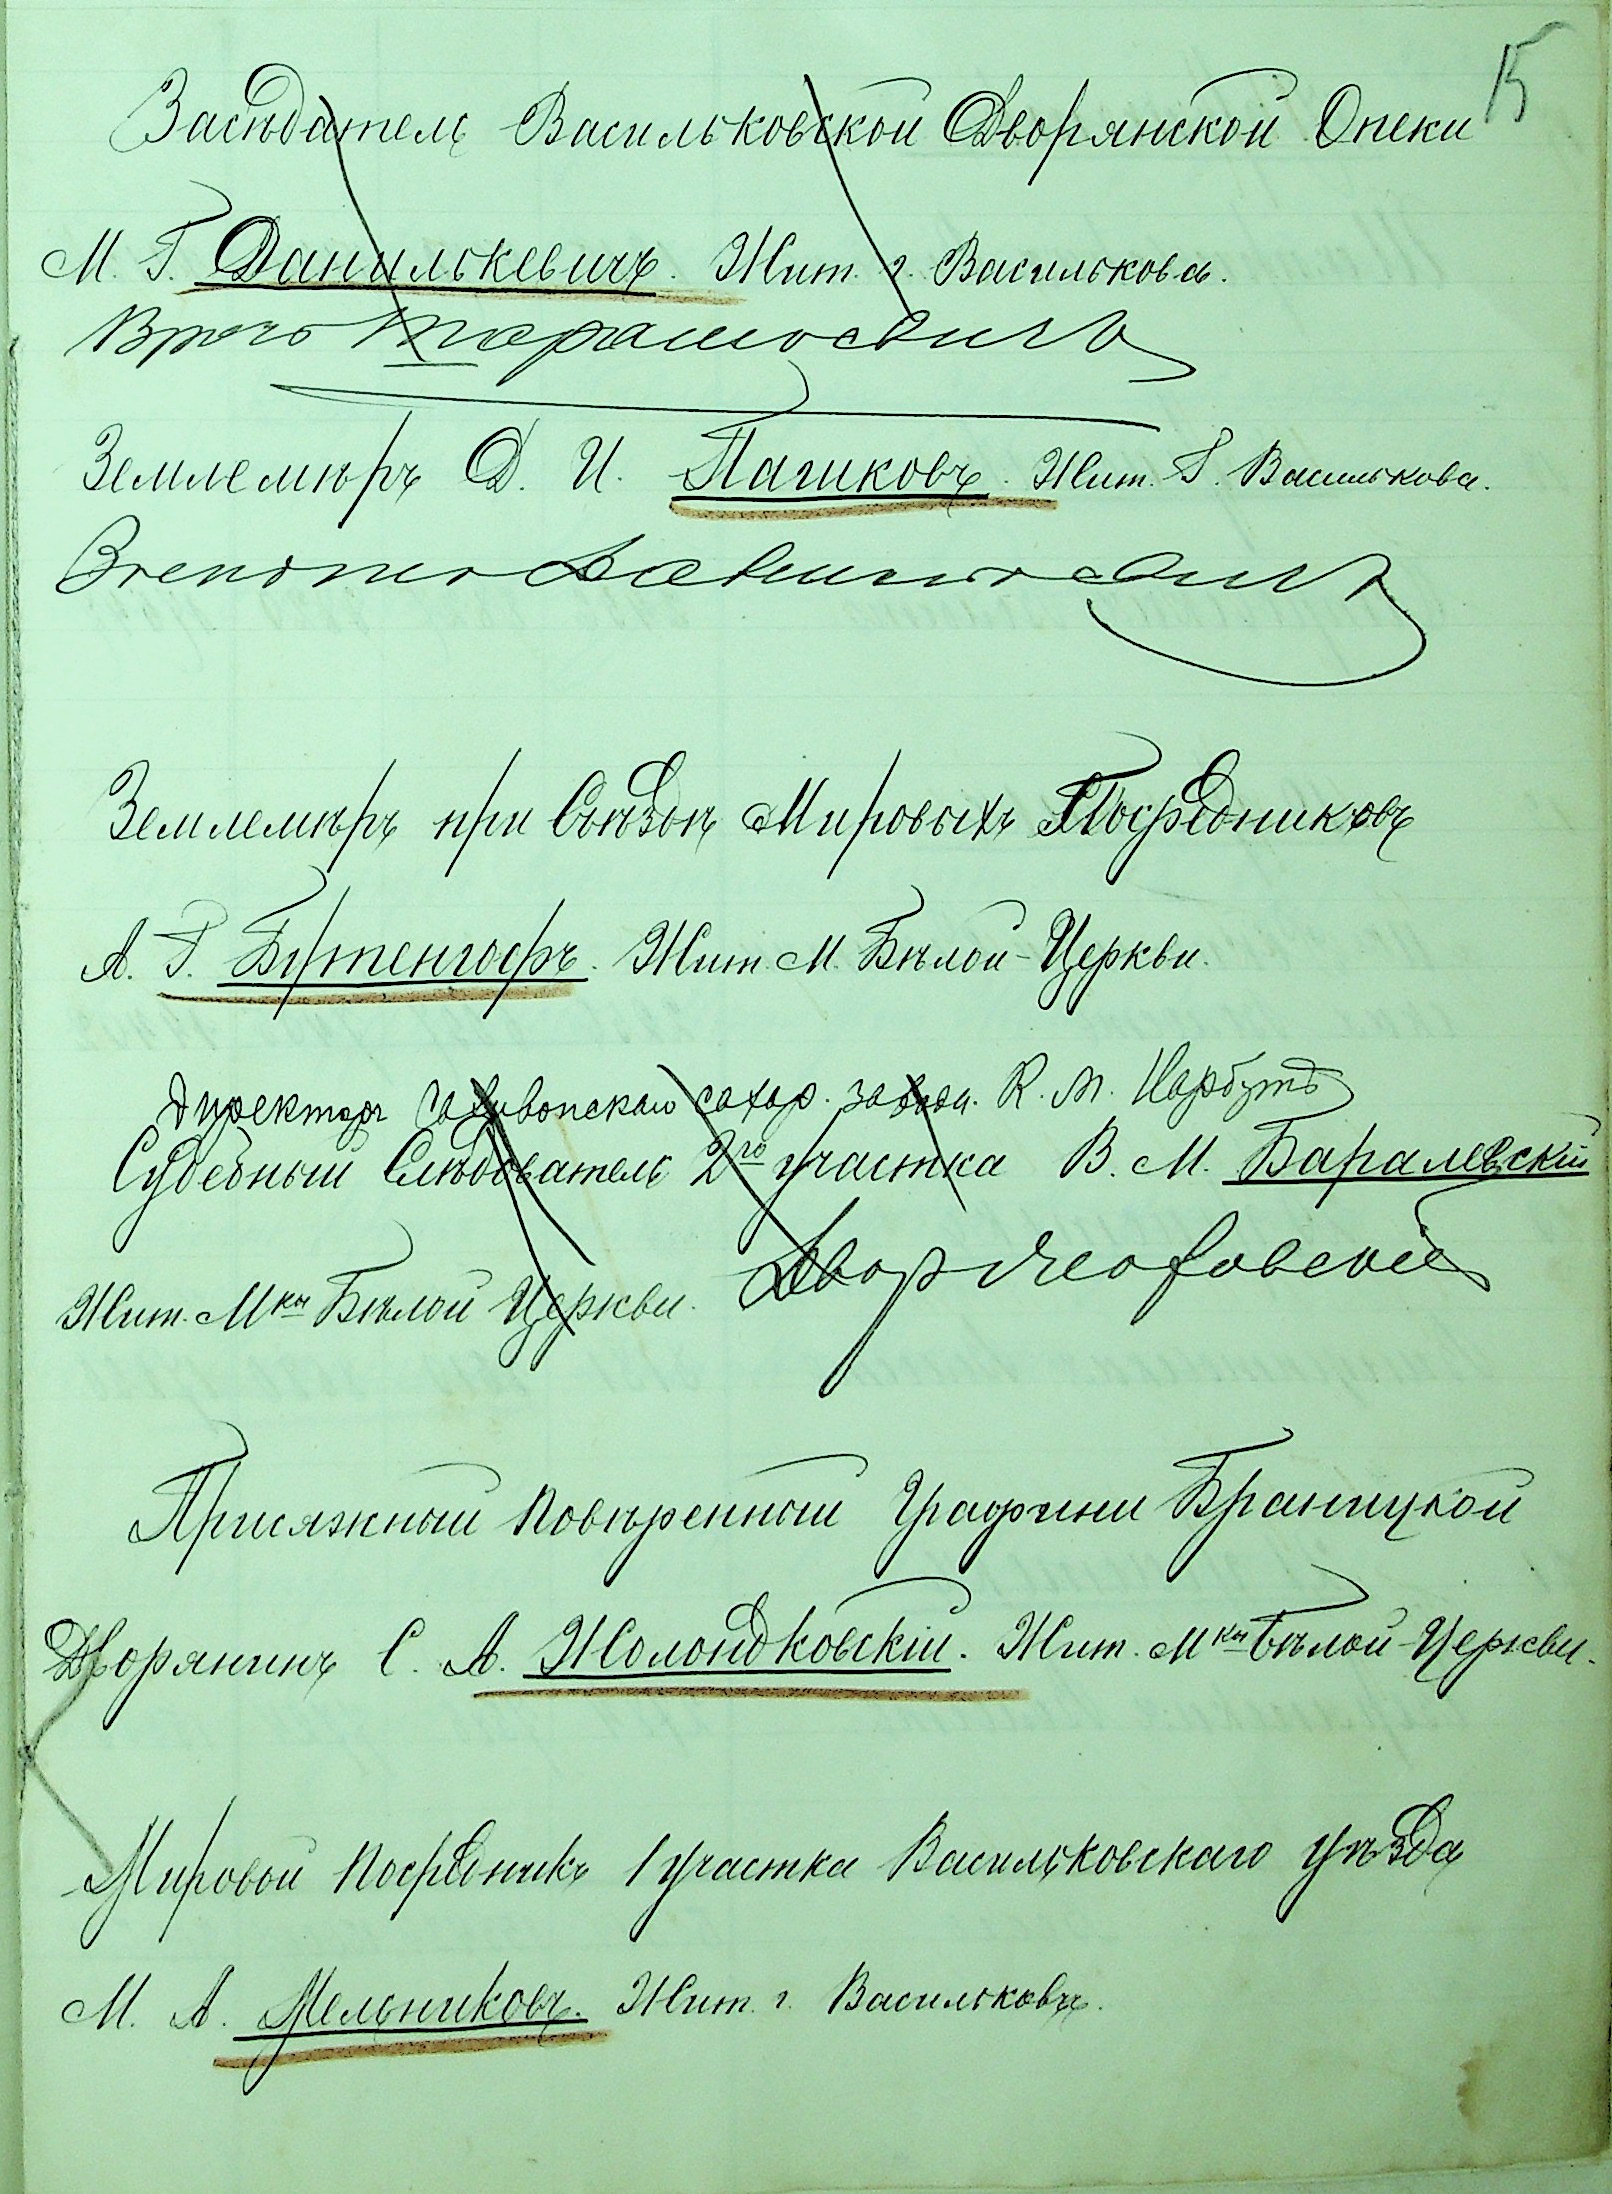 15
Засѣдатель Васильковской Дворянской Опеки
М. Г. Данилькевичъ. Жит. г. Василькова.
Врачъ
Землемѣръ Д. И. Пашковъ. Жит. Г. Василькова.
Землемѣръ при Съѣздѣ Мировыхъ Посредниковъ
А. Г. Бутенгофъ. Жит. М. Бѣлой-Церкви.
Директоръ сахар. завода. К. М. Нарбутъ
Судебный Слѣдователь 2го участка В. М. Баралевскій
Жит. Мки Бѣлой Церкви.
Присяжный повѣренный Графини Браницкой
Дворянинъ С. А. Жолондковскій. Жит. Мки Бѣлой-Церкви.
Мировой посредникъ 1 участка Васильковскаго уѣзда
М. А. Мельниковъ. Жит. г. Василькова.